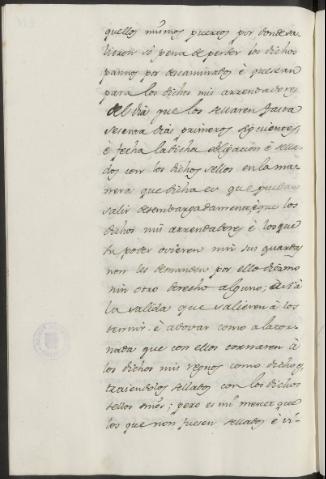 quellos mismos puertos por donde sa-
lieron só pena de perder los dichos
pannos por descaminados è que sean
para los dichos mis arrendadores
del dia que los sellaren fasta
sesenta dias primeros siguientes,
è fecha la dicha obligacion è sella-
dos con los dichos sellos en la ma-
nera que dicha es que puedan
salir desembargadamente, è que los
dichos mis arrendadores è los que
su poder ovieren nin sus guardas
non les demanden por ello diezmo
nin otro derecho alguno, así à
la salida que salieren à los
è abonar como à la tor-
nada que con ellos tornaren à
los dichos mis regnos como dicho es,
trayendolos sellados con los dichos
sellos; pero es mi merced que
los que non fuesen sellados è